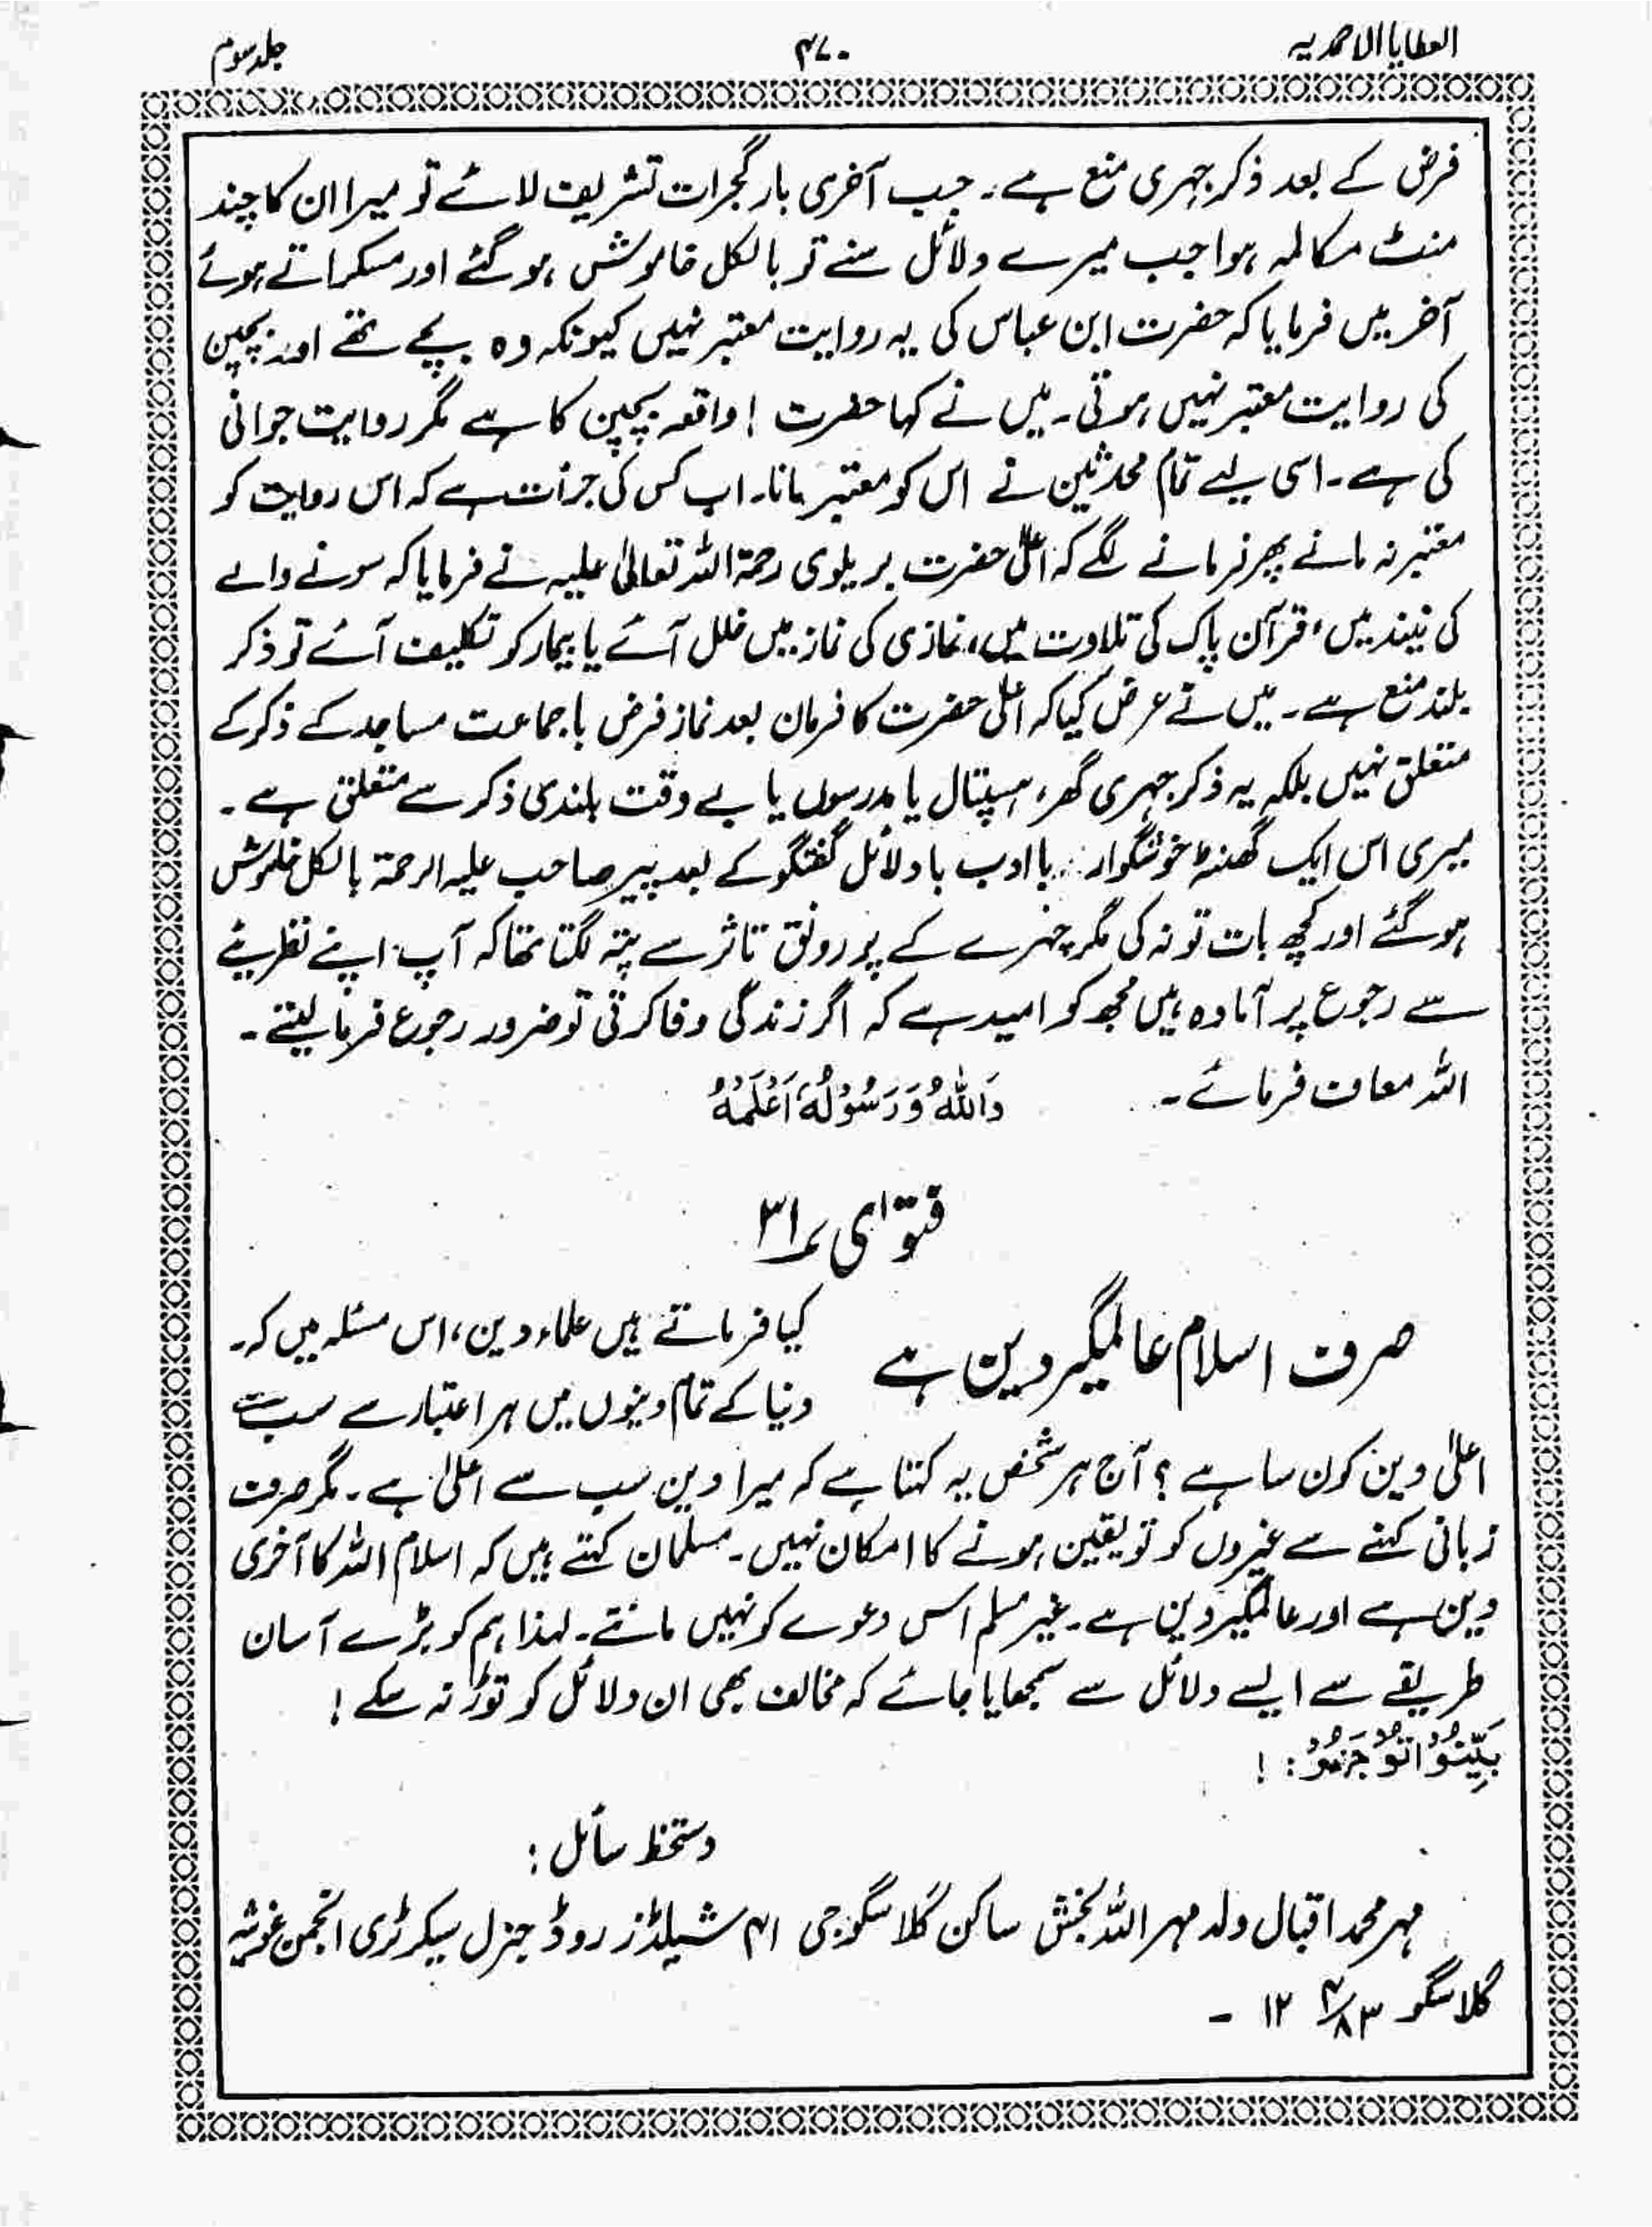 العطایا الاحمدیہ
۴۷۰
جلد سوم
فرض کے بعد ذکر جہری منع ہے۔ جب آخری بار گجرات تشریف لائے تو میرا ان کا چند
منٹ مکالمہ ہوا جب میرے دلائل سنے تو بالکل خاموش ہو گئے اور مسکراتے ہوئے
آخر میں فرمایا کہ حضرت ابن عباس کی یہ روایت معتبر نہیں کیونکہ وہ بچے تھے اور بچپن
کی روایت معتبر نہیں ہوتی۔ میں نے کہا حضرت ! واقعہ بچپن کا ہے مگر روایت جوانی
کی ہے۔ اسی لیے تمام محدثین نے اس کو معتبر مانا۔ اب کس کی جرأت ہے کہ اس روایت کو
معتبر نہ مانے پھر فرمانے لگے کہ اعلیٰ حضرت بریلوی رحمۃ اللہ تعالیٰ علیہ نے فرمایا کہ سونے والے
کی نیند میں، قرآن پاک کی تلاوت میں، نمازی کی نماز میں خلل آئے یا بیمار کو تکلیف آئے تو ذکر
بلند منع ہے۔ میں نے عرض کیا کہ اعلیٰ حضرت کا فرمان بعد نماز فرض با جماعت مساجد کے ذکر کے
متعلق نہیں بلکہ یہ ذکر جہری گھر، ہسپتال یا مدرسوں یا بے وقت بلندی ذکر سے متعلق ہے۔
میری اس ایک گھنٹہ خوشگوار با ادب با دلائل گفتگو کے بعد پیر صاحب علیہ الرحمۃ بالکل خاموش
ہو گئے اور کچھ بات تو نہ کی مگر چہرے کے پر رونق تاثر سے پتہ لگتا تھا کہ آپ اپنے نظریئے
سے رجوع پر آمادہ ہیں مجھ کو امید ہے کہ اگر زندگی وفا کرتی تو ضرور رجوع فرما لیتے۔
اللہ معاف فرمائے۔ وَاللّٰهُ وَرَسُوْلُهٗ اَعْلَمُهٗ
فتوٰی ۳۱؎
صرف اسلام عالمگیر دین ہے
کیا فرماتے ہیں علماء دین، اس مسئلہ میں کہ۔
دنیا کے تمام دینوں میں ہر اعتبار سے سب سے
اعلیٰ دین کون سا ہے ؟ آج ہر شخص یہ کہتا ہے کہ میرا دین سب سے اعلیٰ ہے۔ مگر صرف
زبانی کہنے سے غیروں کو تو یقین ہونے کا امکان نہیں۔ مسلمان کہتے ہیں کہ اسلام اللہ کا آخری
دین ہے اور عالمگیر دین ہے۔ غیر مسلم اس دعوے کو نہیں مانتے۔ لہذا ہم کو بڑے آسان
طریقے سے ایسے دلائل سے سمجھایا جائے کہ مخالف بھی ان دلائل کو توڑ نہ سکے !
بَيِّنُوْا تُوْجَرُوْا : !
دستخط سائل :
مہر محمد اقبال ولد مہر اللہ بخش ساکن گلاسگو جی ۴۱ شیلڈز روڈ جنرل سیکرٹری انجمن غوثیہ
گلاسگو ۱۲ ۴/۸۳ ۔